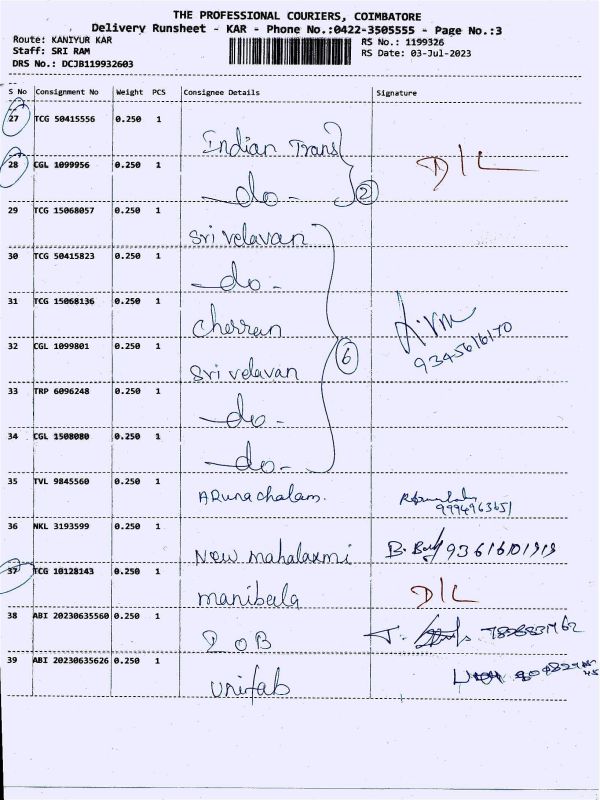 THE PROFESSIONAL COURIERS, COIMBATORE
Delivery Runsheet - KAR - Phone No.:0422-3505555 - Page No.:3
Route: KANIYUR KAR RS No.: 1199326
Staff: SRI RAM RS Date: 03-Jul-2023
DRS No.: DCJB119932603
S No Consignment No Weight PCS Consignee Details Signature
27 TCG 50415556 0.250 1 Indian Trans
28 CGL 1099956 0.250 1 -do- 2 D/L
29 TCG 15068057 0.250 1 Sri velavan
30 TCG 50415823 0.250 1 -do-
31 TCG 15068136 0.250 1 Cherran
32 CGL 1099801 0.250 1 Sri velavan 6 9345616170
33 TRP 6096248 0.250 1 -do-
34 CGL 1508080 0.250 1 -do-
35 TVL 9845560 0.250 1 ARunachalam.
36 NKL 3193599 0.250 1 New mahalaxmi
37 TCG 10128143 0.250 1 manibala D/L
38 ABI 20230635560 0.250 1 POB
39 ABI 20230635626 0.250 1 unifab